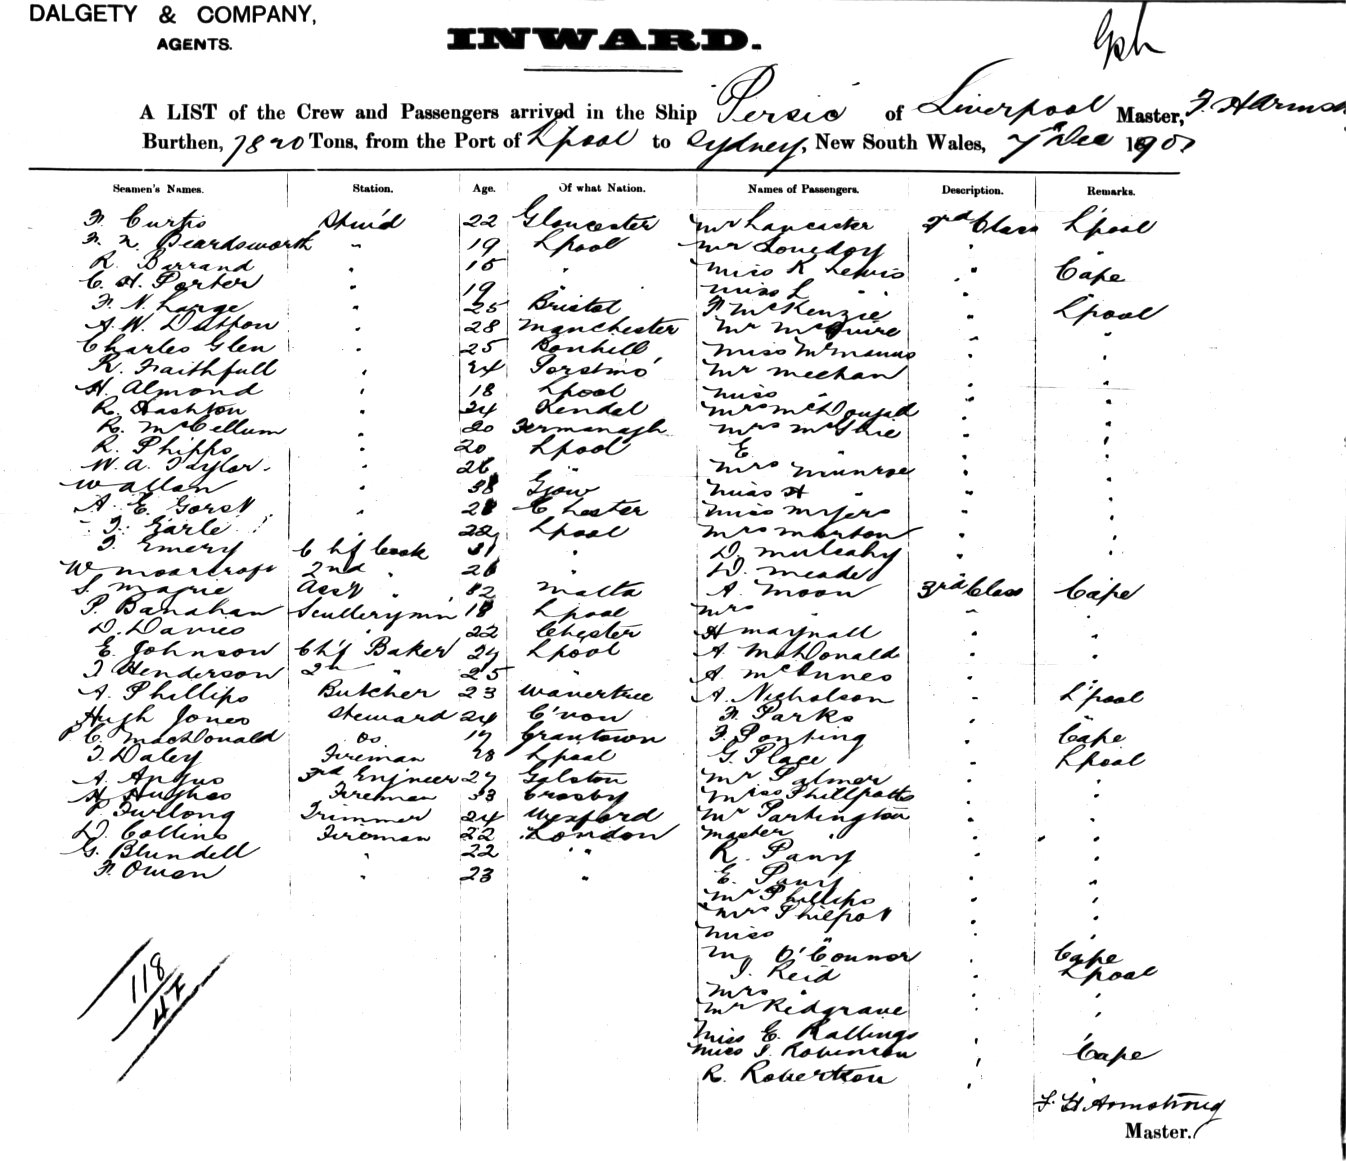 DALGETY & COMPANY,
AGENTS.
INWARD.
A LIST of the Crew and Passengers arrived in the Ship Persic of Liverpool Master,
Burthen, 7820 Tons, from the Port of Lpool to Sydney, New South Wales, 7th Dec 190
Seamen's Names. Station. Age. Of what Nation. Names of Passengers. Description. Remarks.
F. Curtis Stw'd 22 Gloucester Mr Lancaster 3rd Class L'pool
F. N. Beardsworth " 19 Lpool Mr " "
R. Barrand " 15 " Miss K Lewis " Cape
C. H. Porter " 19 " Miss L " " "
F. N. Large " 25 Bristol F McKenzie " L'pool
A. W. Dutton " 28 Manchester Mr McGuire " "
Charles Glen " 25 Bonhill Miss McManus " "
R. Faithfull " 24 Mr Meehan " "
H. Almond " 18 Lpool Miss " " "
R. Hashton " 24 Kendal Mrs McDougald " "
R. McCellum " 20 Fermanagh Mrs McGhie " "
R. Phipps " 20 Lpool E " " "
W. A. Taylor " 26 " Mrs Munroe " "
W Allan " 38 Miss H " " "
A. E. Gorst " 28 Chester Miss Myers " "
T. Earle " 22 Lpool Mrs Morton " "
T. Emery Ch'f Cook 31 " D. Mulcahy " "
W Moorcroft 2nd " 26 " D. Meade " "
S. Magrie Ass't " Malta A. Moon 3rd Class Cape
P. Banahan Scullerymn 18 Lpool Mrs " " "
D. Davies " 22 Chester H Maynall " "
E. Johnson Ch'f Baker 29 Lpool A. McDonald " "
T Henderson 2n " 25 " A. McInnes " "
A. Phillips Butcher 23 Wavertree A. Nicholson " L'pool
Hugh Jones Steward 24 C'von F. Parks " "
P C. MacDonald Do 19 Grantown F. Ponting " Cape
T. Daley Fireman 28 Lpool G. Place " Lpool
A. Angus 3rd Engineer 27 Galston Mr Palmer " "
H Hughes Fireman 33 Crosby Miss Phillpotts " "
P. Furlong Trimmer 24 Wexford Mr Partington " "
D. Collins Fireman 22 London Master " " "
G. Blundell " 22 " R. Parry " "
F. Owen " 23 " E. Parry " "
Mr Phillips " "
Mrs Philpot " "
Miss " " "
O'Connor " Cape
J. Reid " Lpool
Mrs " " "
Mr Redgrave " "
Miss E. Rallings
Miss J. Robinson " Cape
R. Robertson " "
118
F. H Armstrong
Master.